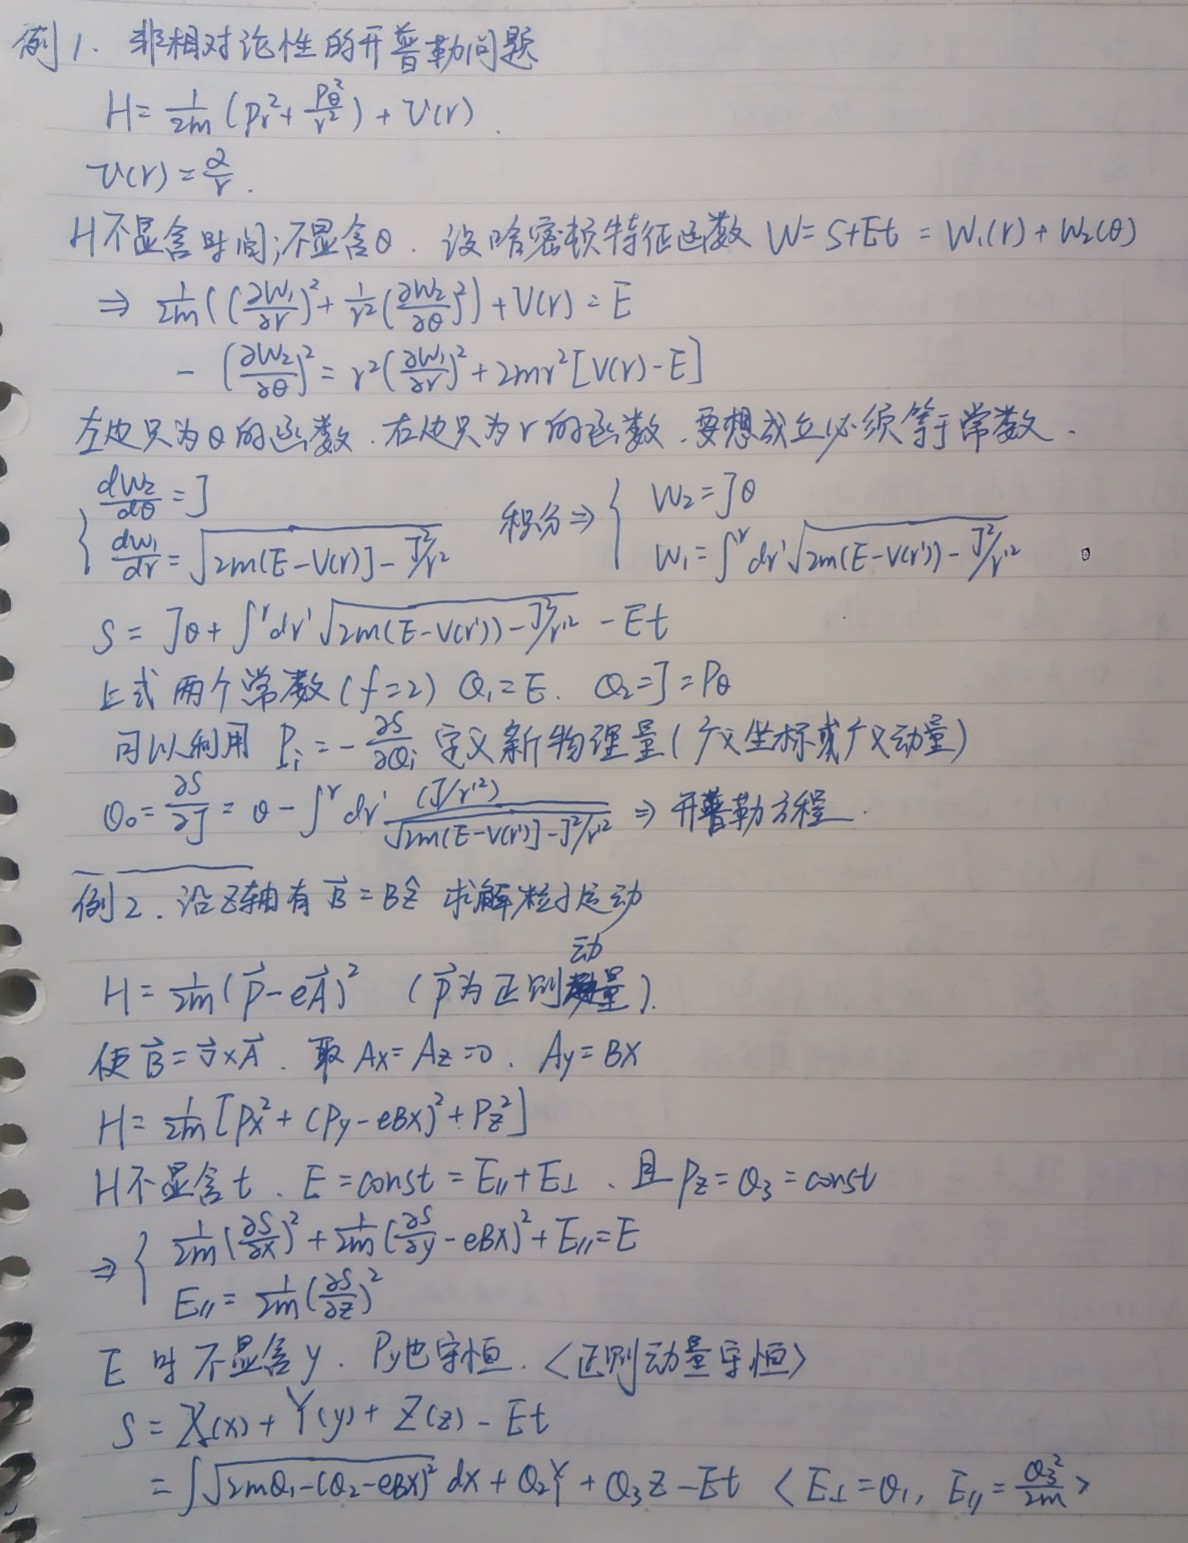 例1. 非相对论性的开普勒问题
H = 1/2m (Pr² + Pθ²/r²) + V(r).
V(r) = α/r.
H不显含时间;不显含θ. 设哈密顿特征函数 W = S+Et = W₁(r) + W₂(θ)
⇒ 1/2m ((∂W₁/∂r)² + 1/r² (∂W₂/∂θ)²) + V(r) = E
- (∂W₂/∂θ)² = r²(∂W₁/∂r)² + 2mr²[V(r)-E]
左边只为θ的函数.右边只为r的函数.要想成立必须等于常数.
{ dW₂/dθ = J 积分⇒ { W₂ = Jθ
dW₁/dr = √(2m(E-V(r)] - J²/r²) W₁ = ∫^r dr' √(2m(E-V(r')) - J²/r'²)
S = Jθ + ∫^r dr' √(2m(E-V(r')) - J²/r'²) - Et
上式两个常数(f=2) Q₁=E. Q₂=J=Pθ
可以利用 Pi = -∂S/∂Qi 定义新物理量(广义坐标或广义动量)
θ₀ = ∂S/∂J = θ - ∫^r dr' (J/r'²)/√(2m(E-V(r')] - J²/r'²) ⇒ 开普勒方程.
例2. 沿Z轴有 B⃗ = Bẑ 求解粒子运动
H = 1/2m (p⃗ - eA⃗)² (p⃗为正则动量).
使 B⃗ = ∇⃗×A⃗. 取 Ax = Az = 0. Ay = Bx
H = 1/2m [Px² + (Py - eBx)² + Pz²]
H不显含t. E = const = E∥ + E⊥. 且 Pz = Q₃ = const
⇒ { 1/2m (∂S/∂x)² + 1/2m (∂S/∂y - eBx)² + E∥ = E
E∥ = 1/2m (∂S/∂z)²
E 时不显含y. Py也守恒. <正则动量守恒>
S = X(x) + Y(y) + Z(z) - Et
= ∫√(2mQ₁ - (Q₂ - eBx)²) dx + Q₂Y + Q₃z - Et <E⊥ = Q₁, E∥ = Q₃²/2m>